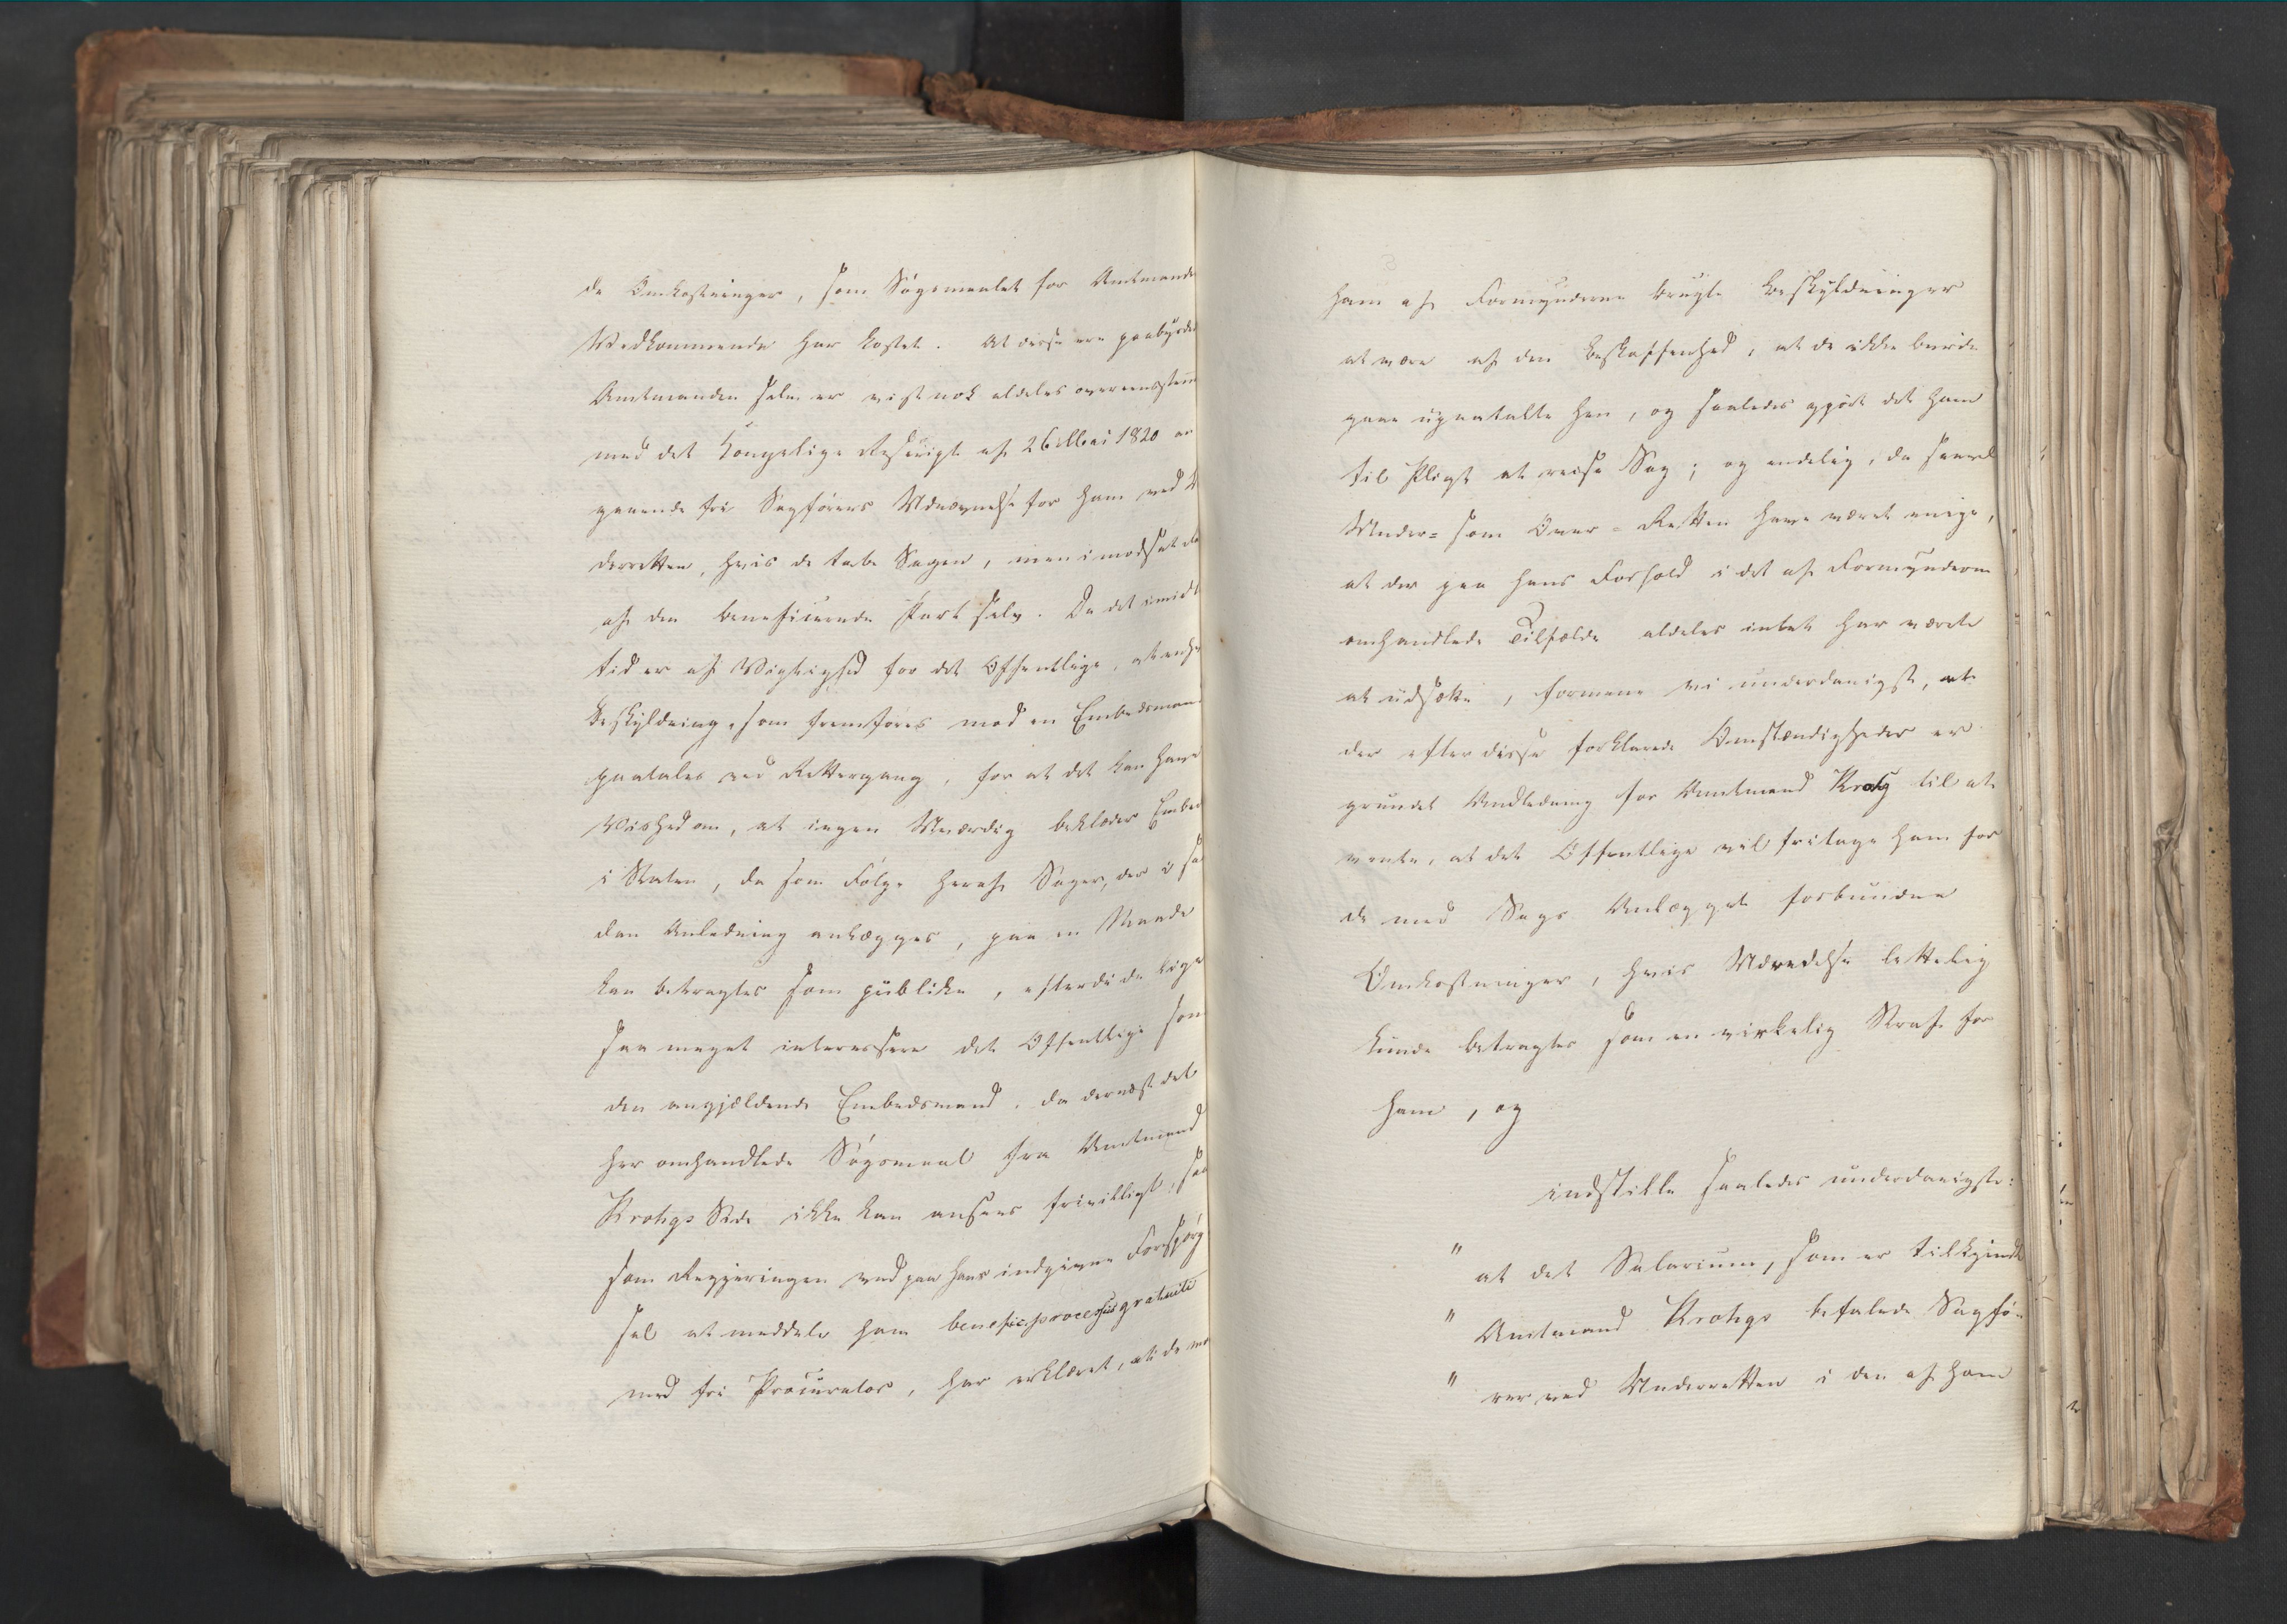 de Omkostninger, som Søgsmaalet for Amtmands
Vedkommende har kostet. At disse ere paabyrdet
Amtmanden selv er vist nok aldeles overeenstem
med det Kongelige Rescript af 26 Mai 1820 an
gaaende fri Sagførers Udnævnelse for ham ved U
derretten, hvis de tabe Sagen, men i modsat
af den beneficerede Part selv. Da det imid
tid er af Vigtighed for det Offentlige, at enhv
Beskyldning, som fremføres mod en Embedsmand
paatales ved Rettergang, for at det kan have
Vished om, at ingen Uværdig beklæder Embed
i Staten, da som Følge heraf Sager, der i saa
dan Anledning anlægges, paa en Maade
kan betragtes som publike, efterdi de lige
saa meget interessere det Offentlige som
den angjældende Embedsmand, da dernæst det
her omhandlede Søgsmaal fra Amtmand
Krohgs Side ikke kan ansees frivilligt, saa
som Regjeringen ved paa hans indgivne Forespørg
sel at meddele ham benefic: processus gratuiti
med fri Procurator, har erklæret, at de mod
ham af Formynderne brugte Beskyldninger
at være af den Beskaffenhed, at de ikke burde
gaae upaatalte hen, og saaledes gjort det ham
til Pligt at reise Sag; og endelig, da saavel
Under- som Over-Retten have været enige,
at der paa hans Forhold i det af Formynderne
omhandlede Tilfælde aldeles intet har været
at udsætte, formene vi underdanigst, at
der efter disse forklarede Omstændigheder er
grundet Anledning for Amtmand Krohg til at
vente, at det Offentlige vil fritage ham for
de med Sags Anlægget forbundne
Omkostninger, hvis Udredelse lettelig
kunde betragtes som en virkelig Straf for
ham, og
indstille saaledes underdanigst:
" at det Salarium, som er tilkjendt
" Amtmand Krohgs befalede Sagfø-
" rer ved Underretten i den af ham